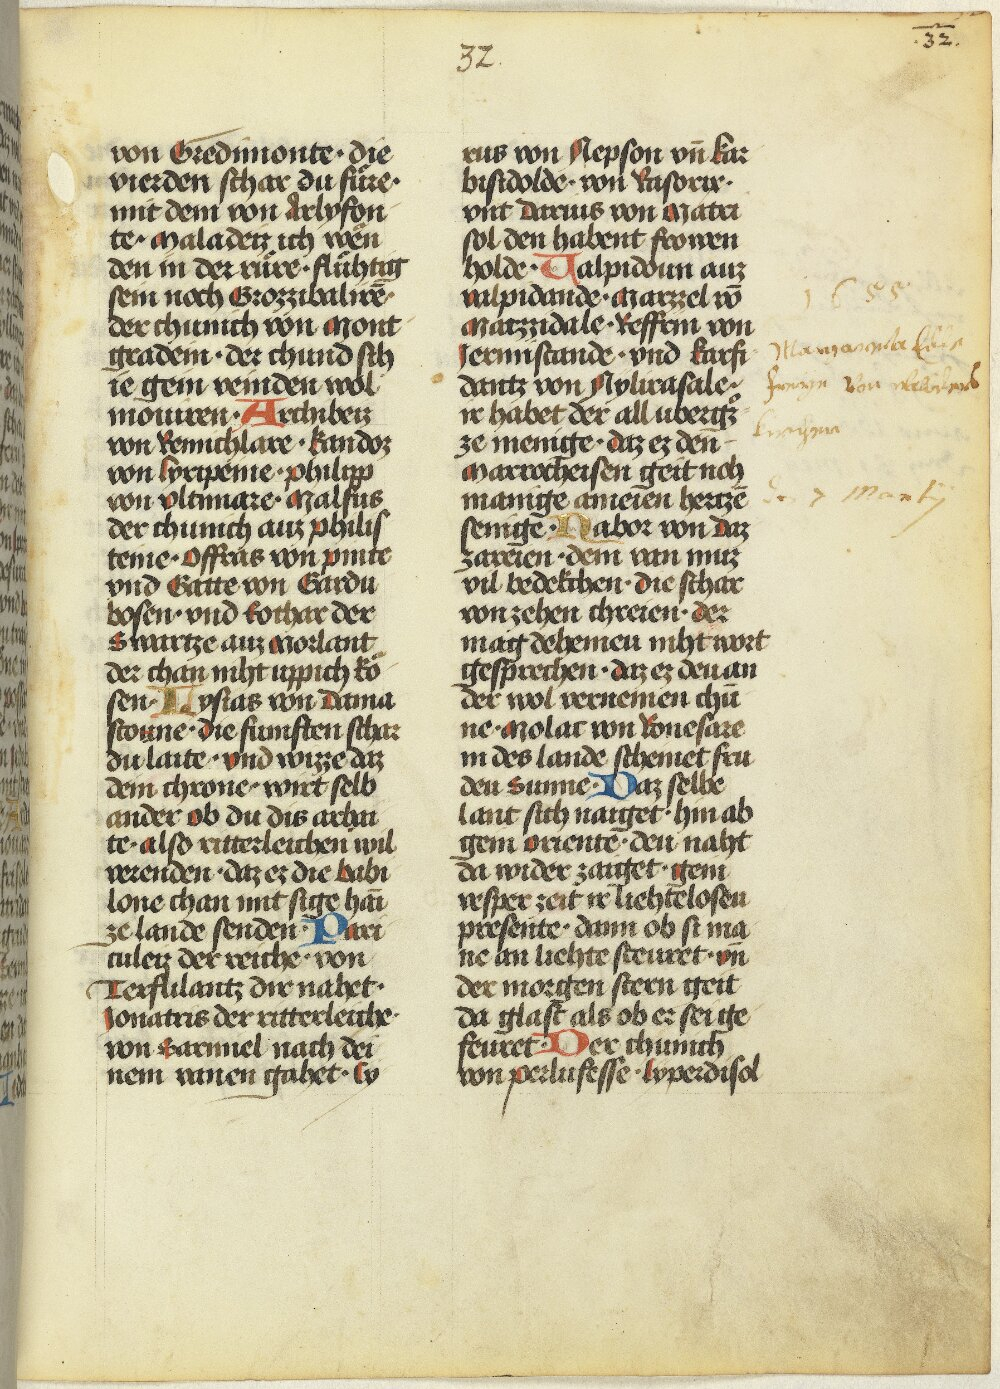 32.
32.
von Gredimonte · die
vierden schar du fůre ·
mit dem von Arlyfon
te · Maladetz ich wên
den in der růre · flůhtig
sein noch Grozzibalirē ·
der chunich von Mont
gradein · der chund sch
ie gein veinden wol
mouiren · Archibeiz
von Remchlare · kandoz
von lyripenie · philipp
von vltimare · Malfus
der chunich auz philis
teine · Offras von pinte
vnd Gatte von Gardu
bosen · vnd Lothar der
Swartze auz Morlant
der chan niht uppich kŏ
sen · Lysias von Dama
scoune · die fumften schar
du laite · vnd wizze daz
dem chrone · wirt selb
ander ob du dis arbai
te · also ritterleichen wil
verenden · daz ez die babi
lone chan mit sige hāī
ze lande senden · Pari
culeiz der reiche · von
Terflilantz dir nahet ·
Jonatris der ritterleiche ·
von Sarmiel nach dei
nem vanen gahet · Cy
rus von Nepson vn̄ kar
bistdolde · von Rasorir ·
vnt Darius von Matri
sol den habent frowen
holde · Talpidoun auz
valpidande · Marzzel vō
Marzzidale · Reffrin von
Jermistande · vnd karfi
dantz von Nylirasale ·
ir habet der all ubergȥ
ze menige · daz ez den
Marrocheisen geit noh
manige ameien hertzē
senige · Nabor von Daz
zareien · dem van muz
vil bedekchen · die schar
von zehen chreien · der
mag deheineu niht wort
gesprechen · daz ez deu an
der wol vernemen chü
ne · Molat von Ronesare
in des lande scheinet fru
den Sunne · Daz selbe
lant sich naiget · hin ab
gein oriente · deu naht
da wider zaiget · gein
vesper zeit ir liehtēlosen
presente · dann ob si ma
ne an liehte steuret · vn̄
der morgen stern geit
da glast als ob er sei ge
feuret · Der chunich
von perlufesse · lyperdisol
1655
von